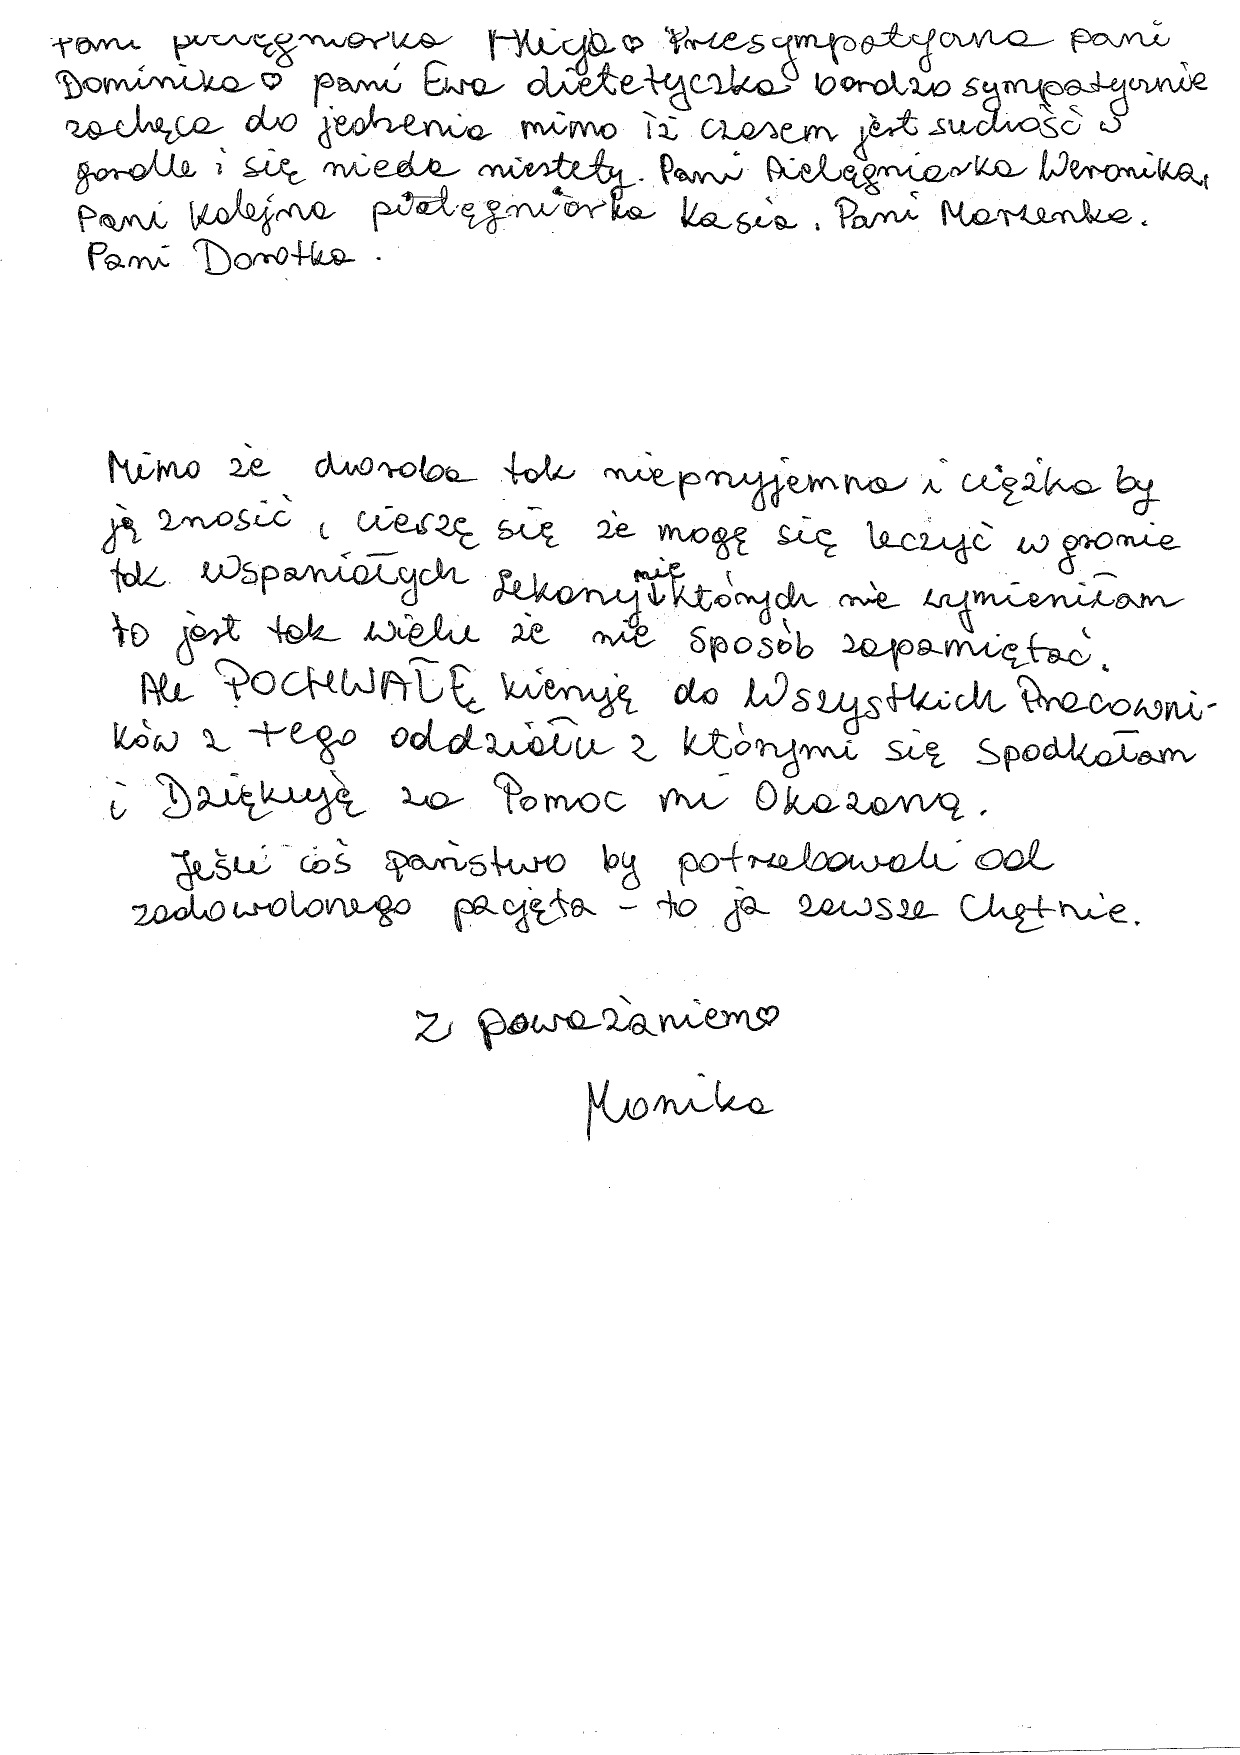 Pani pielęgniarka Alicja♡ Przesympatyczna pani
Dominika♡ pani Ewa dietetyczka bardzo sympatycznie
zachęca do jedzenia mimo iż czasem jest suchość w
gardle i się nieda niestety. Pani Pielęgniarka Weronika,
Pani Kolejna pielęgniarka Kasia. Pani Marzenka.
Pani Dorotka.
Mimo że choroba tak nieprzyjemna i ciężko by
ją znosić, cieszę się że mogę się leczyć w gronie
tak wspaniałych Lekarzy których nie wymieniłam
to jest tak wielu że nie sposób zapamiętać.
Ale POCHWAŁĘ kieruję do Wszystkich Pracowni-
ków z tego oddziału z którymi się spodkałam
i Dziękuję za Pomoc mi Okazaną.
Jeśli coś państwo by potrzebowali od
zadowolonego pacjęta – to ja zawsze Chętnie.
Z poważaniem♡
Monika